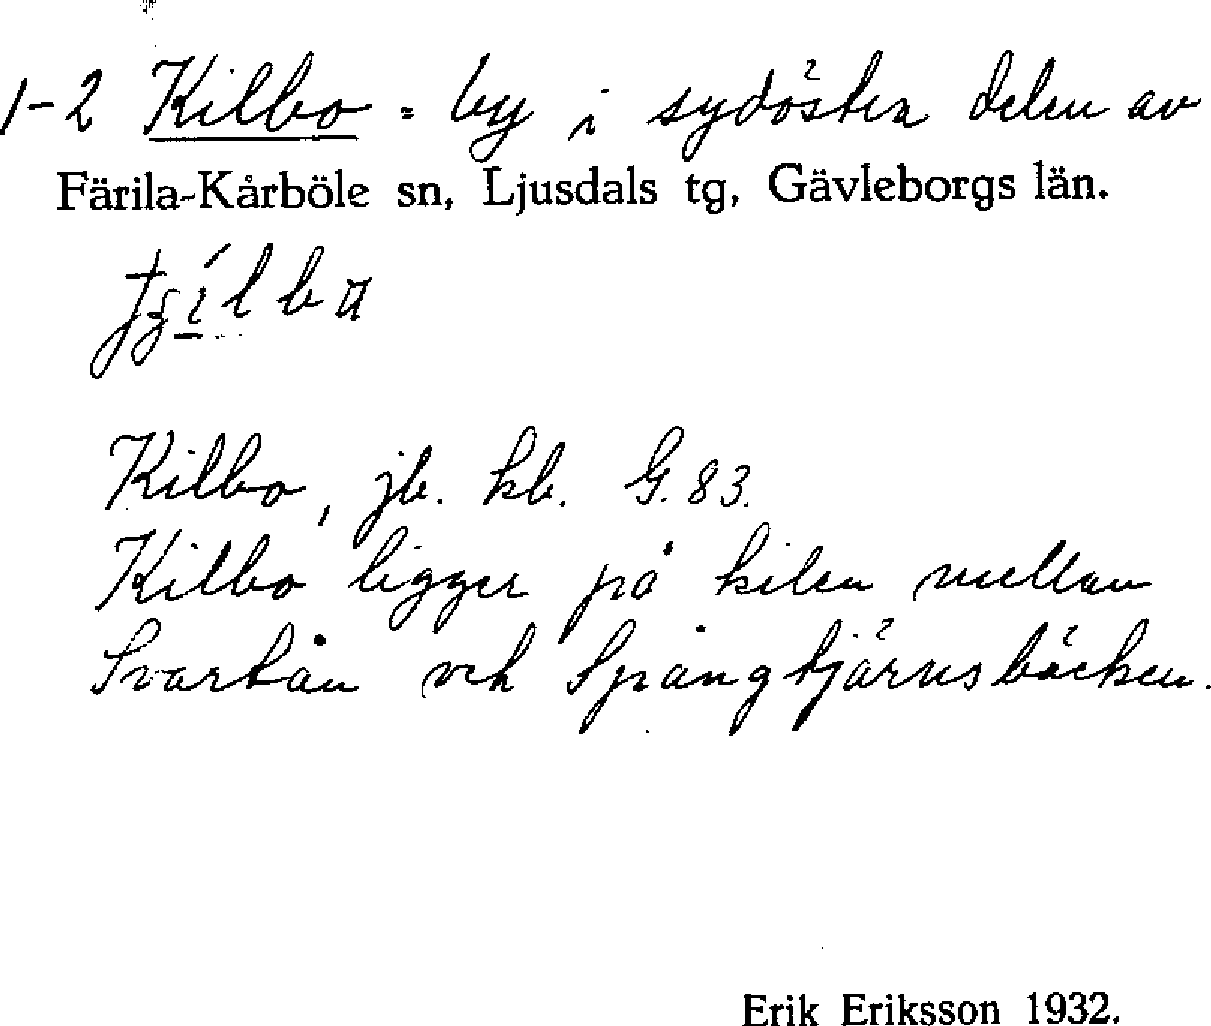 1-2 Kilbo = by i sydöstra delen av
Färila-Kårböle sn, Ljusdals tg, Gävleborgs län.
Kilbo, jb. kb. G. 83.
Kilbo ligger på kilen mellan
Svartån och Spångtjärnsbäcken.
Erik Eriksson 1932.